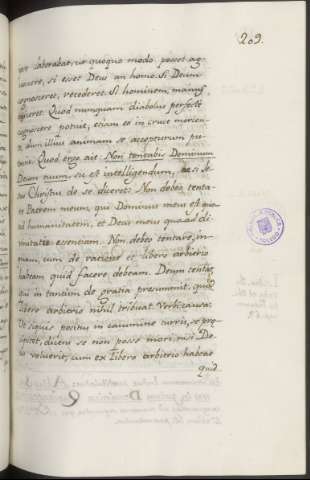 209.
laborabat, ut quoquo modo posset ag-
si esset Deus an homo. Si Deum
cognosceret, recederet. Si hominem, manus
Quod nunquam diabolus perfecte
cognoscere potuit, etiam ex in cruce
dum illius animam se accepturum pu-
Quod ergo ait: Non tentabis Dominum
Deum tuum, sic est intelligendum, ac si Je-
sus Christus de se diceret: Non debeo tenta-
re Patrem meum, qui Dominus meus est quo-
ad humanitatem, et Deus meus quoad di-
vinitatis essentiam. Non debeo tentare, in-
quam, cum de ratione et libero arbitrio
habeam quid facere debeam. Deum tentat,
qui in tantum de gratia presumit, quod
libero arbitrio nihil tribuat. Verbi causa:
Ut siquis positus in cacumine turris, se pro-
jiciat, dicens se non posse mori, nisi De-
us voluerit, cum ex libero arbitrio habeat
quid